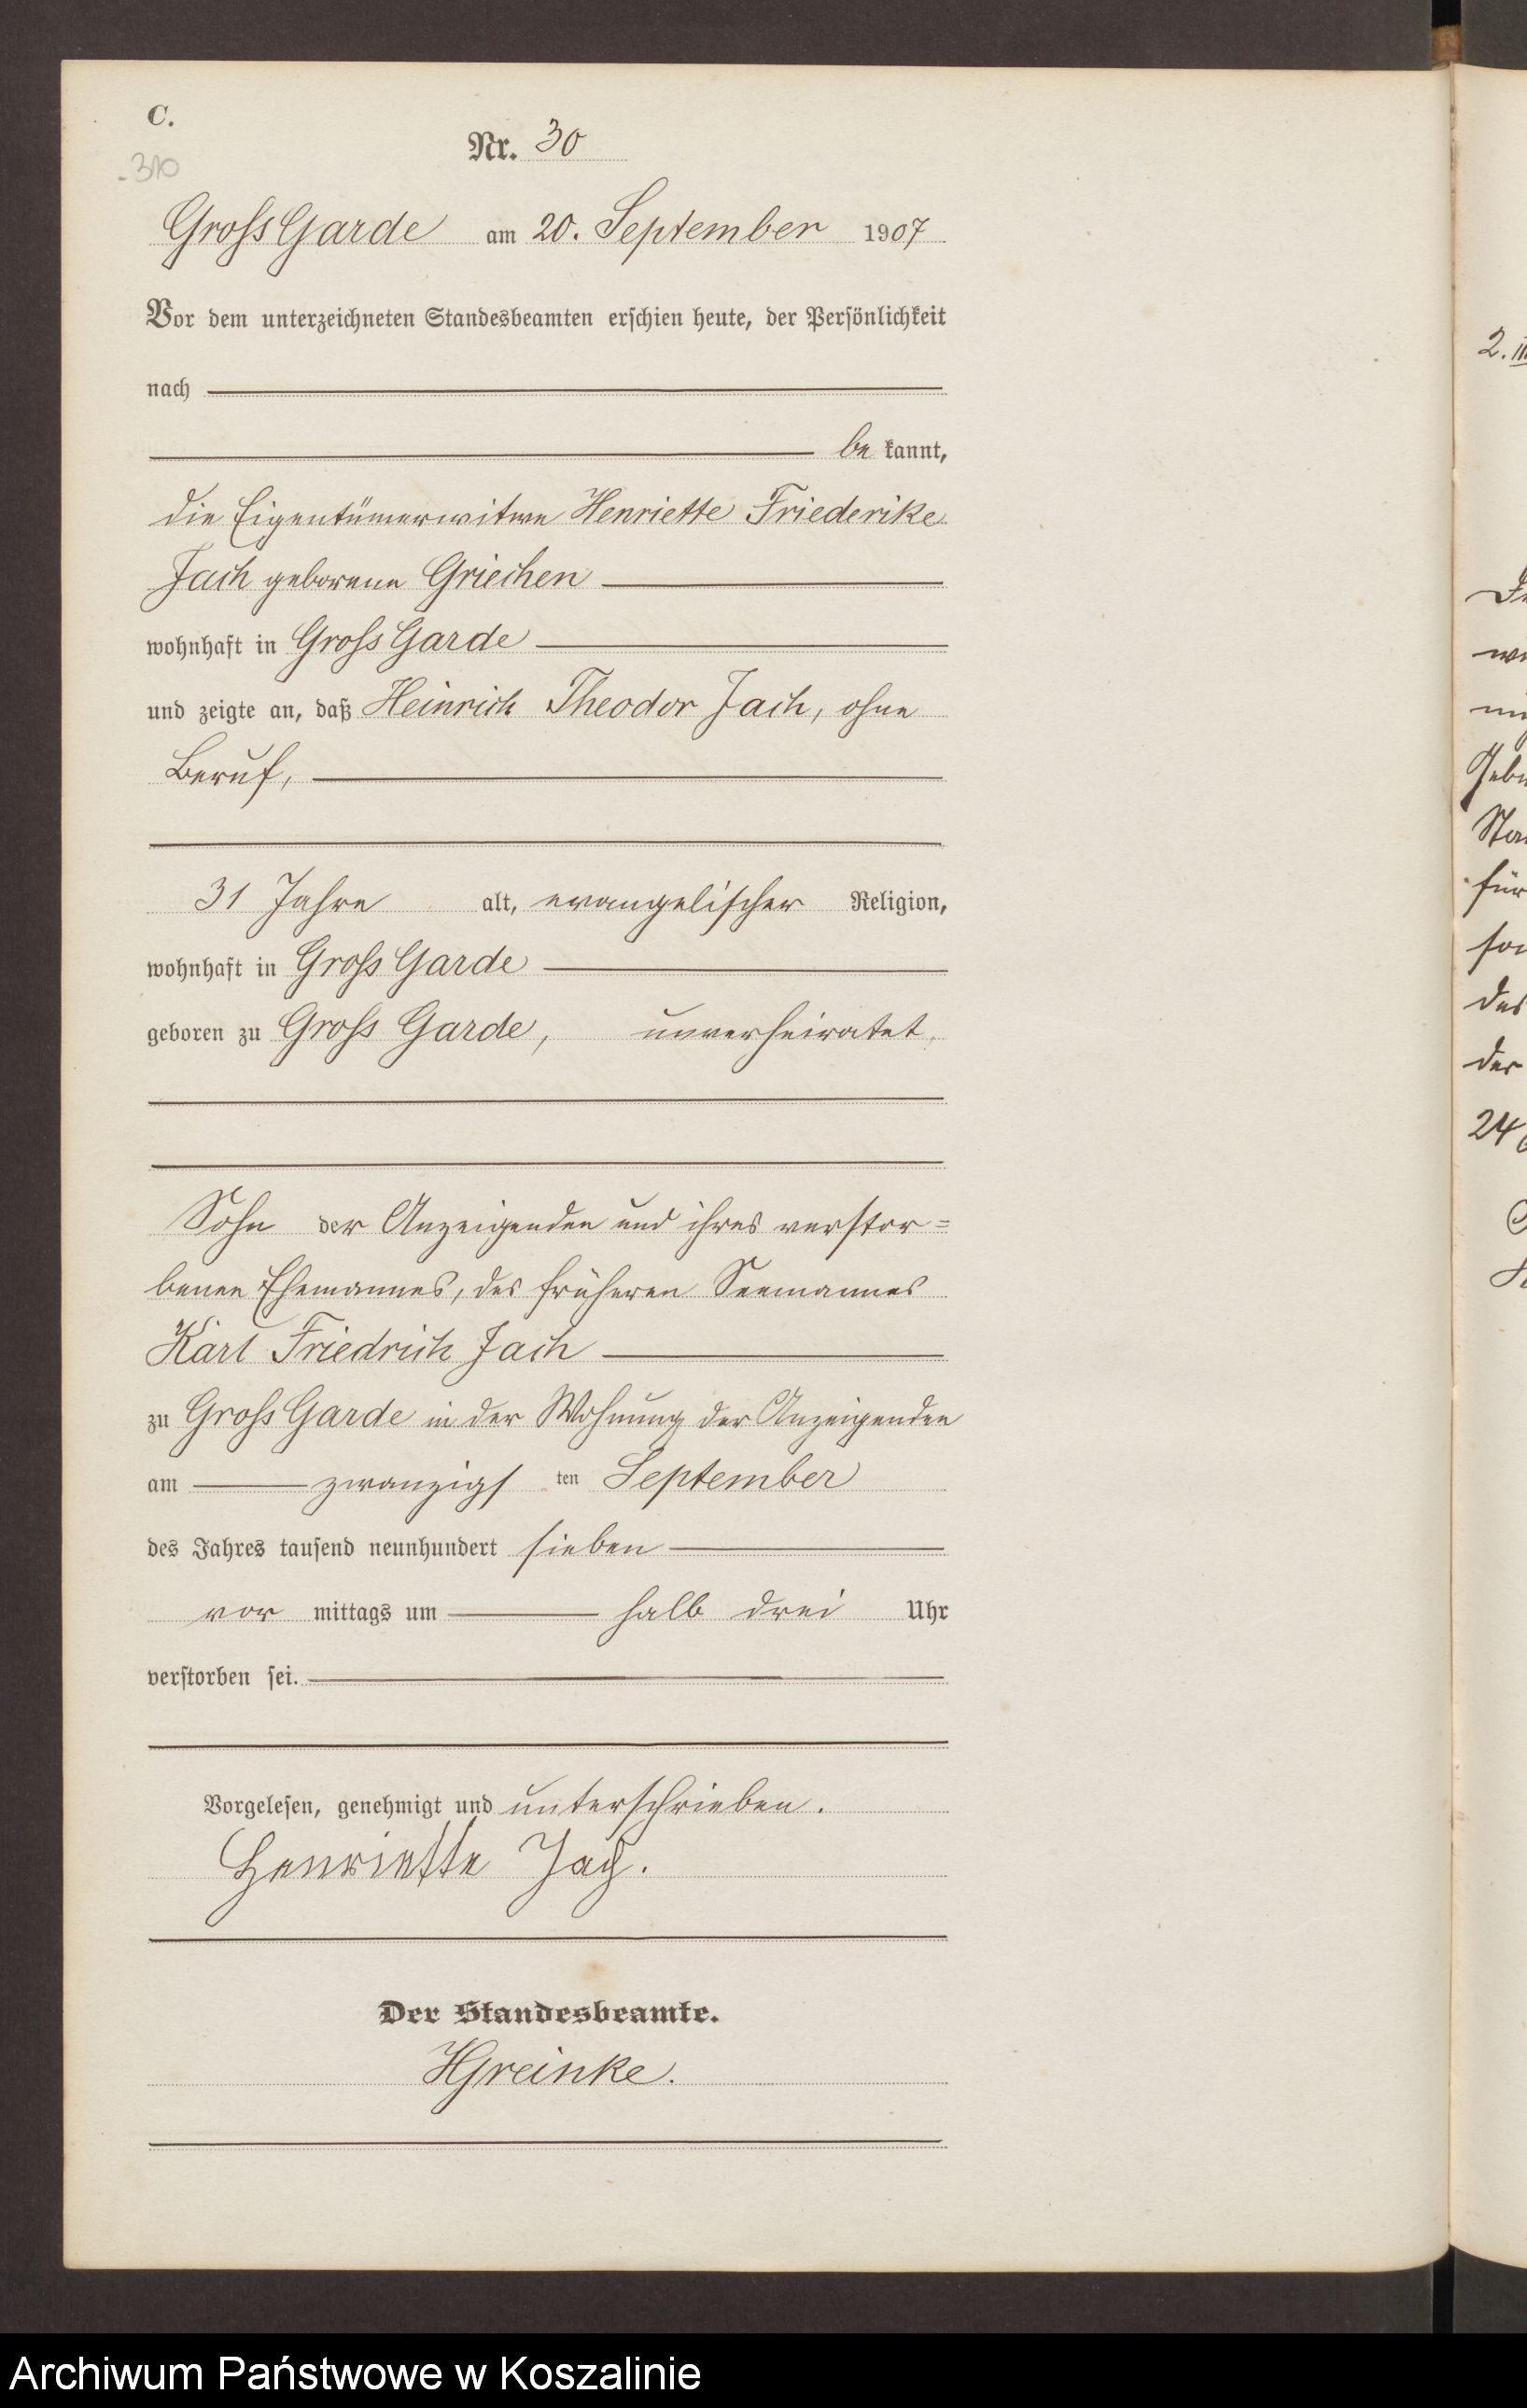 C.
310
Nr. 30
Gross Garde am 20. September 1907
Vor dem unterzeichneten Standesbeamten erschien heute, der Persönlichkeit
nach
be kannt,
die Eigentümerwitwe Henriette Friederike
Jach geborene Griechen
wohnhaft in Gross Garde
und zeigte an, daß Heinrich Theodor Jach, ohne
Beruf,
31 Jahre alt, evangelischer Religion,
wohnhaft in Gross Garde
geboren zu Gross Garde, unverheiratet,
Sohn der Anzeigenden und ihres verstor=
benen Ehemannes, des früheren Seemannes
Karl Friedrich Jach
zu Gross Garde in der Wohnung der Anzeigenden
am zwanzigs ten September
des Jahres tausend neunhundert sieben
vor mittags um halb drei Uhr
verstorben sei.
Vorgelesen, genehmigt und unterschrieben.
Henriette Jach.
Der Standesbeamte.
HGreinke.
2. III
für
des
der
24
Archiwum Państwowe w Koszalinie